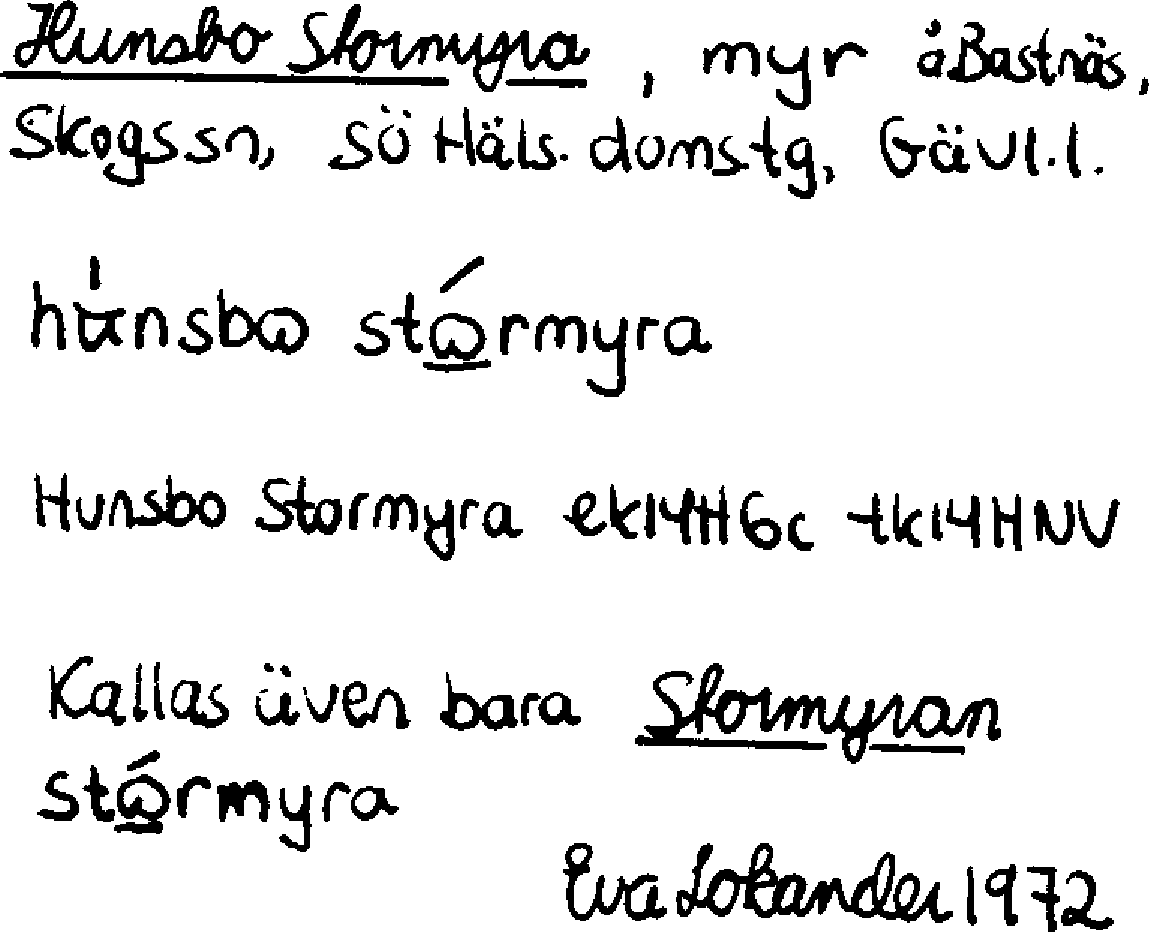 Hunsbo Stormyra, myr å Bastnäs,
Skogs sn, sö Häls. domstg, Gävl.l.
hʉ̍nsbꞷ stꞷ̲́rmyra
Hunsbo Stormyra ek14H6c tk14HNV
Kallas även bara Stormyran
stꞷ̲́rmyra
Eva Lokander 1972